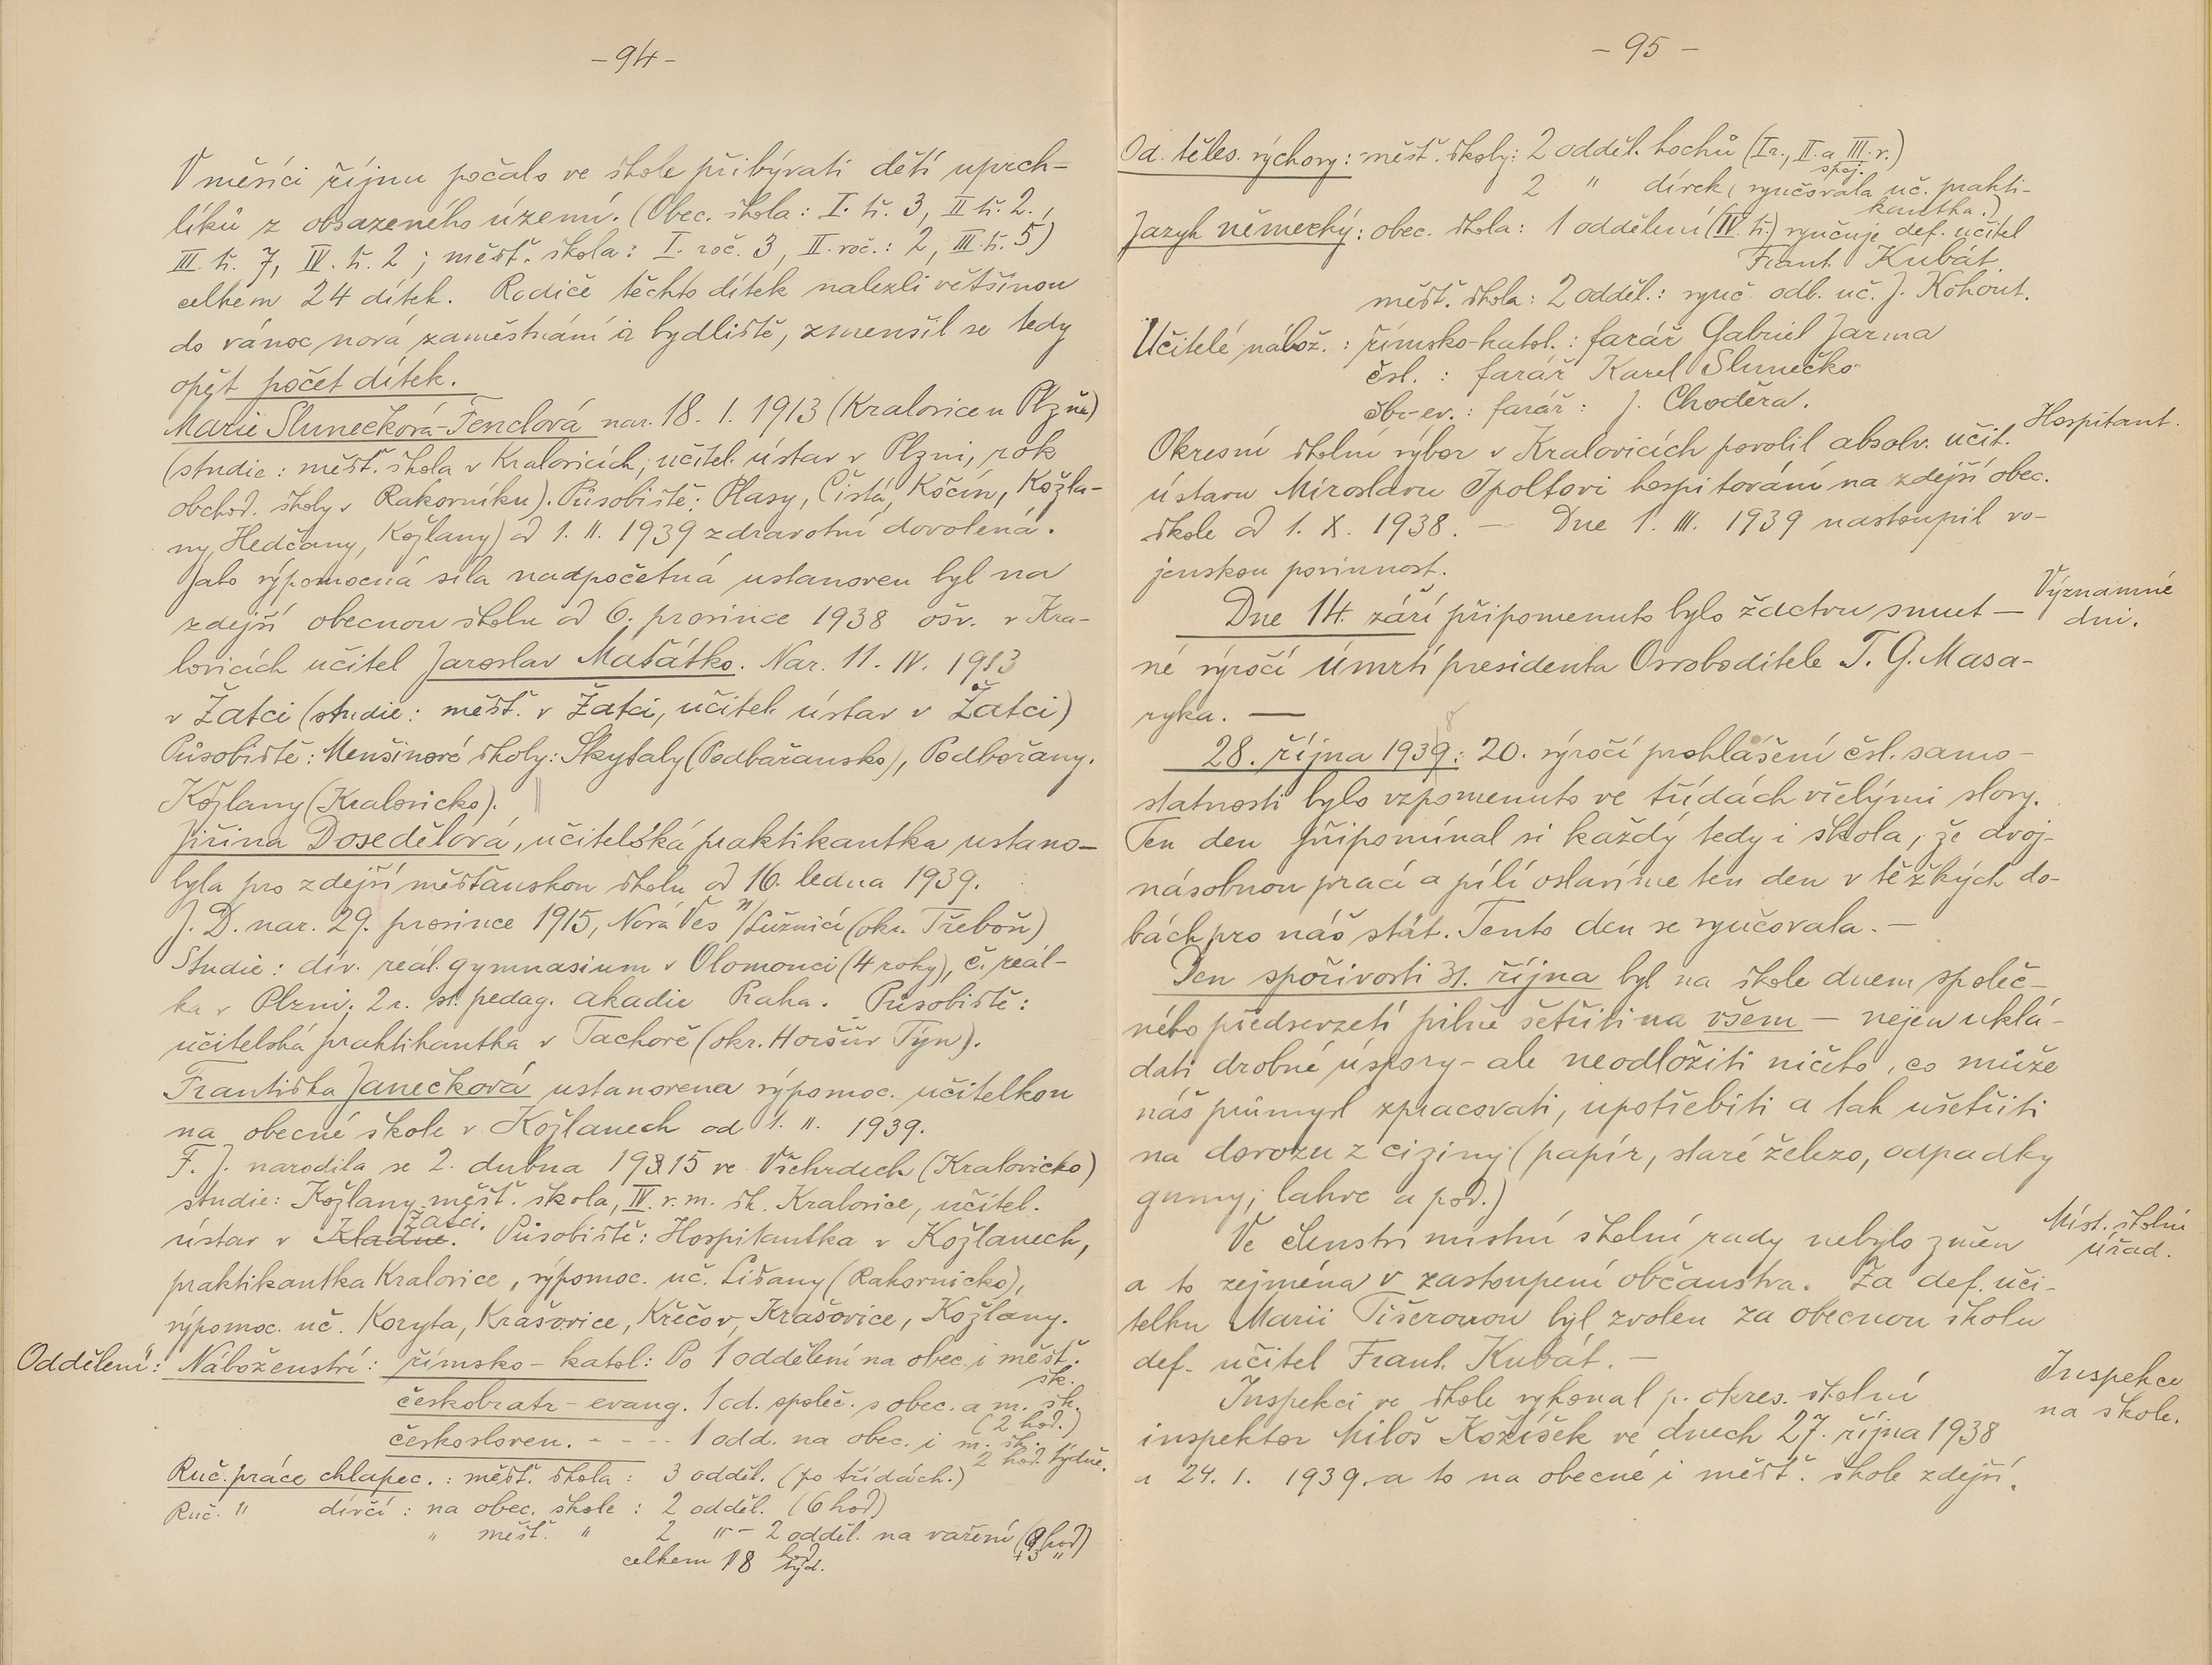 – 94 –
V měsíci říjnu počalo ve škole přibývati dětí uprch-
líků z obsazeného území. (Obec. škola: I. tř. 3, II tř. 2.,
III. tř. 7, IV. tř. 2 ; měšť. škola: I. roč. 3, II. roč.: 2, III. tř. 5)
celkem 24 dítek. Rodiče těchto dítek nalezli většinou
do vánoc nová zaměstnání a bydliště, zmenšil se tedy
opět počet dítek.
Marie Slunečková-Fenclová nar. 18. 1. 1913 (Kralovice u Plzně)
(studie: měšť. škola v Kralovicích, učitel. ústav v Plzni, rok
obchod. školy v Rakovníku). Působiště: Plasy, Čistá, Kočín, Kožla-
ny, Hedčany, Kožlany) od 1. II. 1939 zdravotní dovolená.
Jako výpomocná síla nadpočetná ustanoven byl na
zdejší obecnou školu od 6. prosince 1938 ošv. v Kra-
lovicích učitel Jaroslav Mašátko. Nar. 11. IV. 1913
v Žatci (studie: měšť. v Žatci, učitel. ústav v Žatci)
Působiště: Menšinové školy: Skytaly (Podbořansko), Podbořany.
Kožlany (Kralovicko).
Jiřina Dosedělová, učitelská praktikantka ustano-
byla pro zdejší měšťanskou školu od 16. ledna 1939.
J. D. nar. 29. prosince 1915, Nová Ves n/Lužnicí (okr. Třeboň)
Studie: dív. reál. gymnasium v Olomouci (4 roky), č. reál-
ka v Plzni, 2 r. st. pedag. akadie Praha. Působiště:
učitelská praktikantka v Tachově (okr. Horšův Týn).
Františka Janečková ustanovena výpomoc. učitelkou
na obecné škole v Kožlanech od 1. II. 1939.
F. J. narodila se 2. dubna 1915 ve Všehrdech (Kralovicko)
studie: Kožlany měšť. škola, IV. r. m. šk. Kralovice, učitel.
ústav v Kladně. Žatci. Působiště: Hospitantka v Kožlanech,
praktikantka Kralovice, výpomoc. uč. Lišany (Rakovnicko),
výpomoc. uč. Koryta, Krašovice, Křečov, Krašovice, Kožlany.
Oddělení: Náboženství: římsko-katol: Po 1 oddělení na obec. i měšť.
šk.
českobratr-evang. 1 od. společ. s obec. a m. šk.
(2 hod.)
českosloven. - - - - 1 odd. na obec. i m. šk.
2 hod. týdně.
Ruč. práce chlapec.: měšť. škola: 3 odděl. (po třídách.)
Ruč. " dívčí: na obec. škole: 2 odděl. (6 hod)
" měšť. " 2 " – 2 odděl. na vaření (9 hod)
+3 "
celkem 18 hod.
týd.
– 95 –
Od. těles. výchovy: měšť. školy: 2 odděl. hochů (I r., II. a III. r.)
spoj.
2 " dívek (vyučovala uč. prakti-
kantka.)
Jazyk německý: obec. škola: 1 oddělení (IV. tř.) vyučuje def. učitel
Frant. Kubát.
měšť. škola: 2 odděl.: vyuč. odb. uč. J. Kohout.
Učitelé nábož.: římsko-katol.: farář Gabriel Jarma
čsl.: farář Karel Slunečko
čbr-ev.: farář: J. Choděra.
Hospitant.
Okresní školní výbor v Kralovicích povolil absolv. učit.
ústavu Miroslavu Ipoltovi hospitování na zdejší obec.
škole od 1. X. 1938. — Dne 1. III. 1939 nastoupil vo-
jenskou povinnost.
Významné
dni.
Dne 14. září připomenuto bylo žactvu smut-
né výročí úmrtí presidenta Osvoboditele T. G. Masa-
ryka. —
28. října 1939: 20. výročí prohlášení čsl. samo-
statnosti bylo vzpomenuto ve třídách vřelými slovy.
Ten den připomínal si každý tedy i škola, že dvoj-
násobnou prací a pílí oslavíme ten den v těžkých do-
bách pro náš stát. Tento den se vyučovala. —
Den spořivosti 31. října byl na škole dnem společ-
ného předsevzetí pilně šetřiti na všem — nejen uklá-
dati drobné úspory - ale neodložiti ničeho, co může
náš průmysl zpracovati, upotřebiti a tak ušetřiti
na dovozu z ciziny (papír, staré železo, odpadky
gumy, lahve a pod.)
Míst. školní
úřad.
Ve členství místní školní rady nebylo změn
a to zejména v zastoupení občanstva. Za def. uči-
telku Marii Tišerovou byl zvolen za obecnou školu
def. učitel Frant. Kubát. —
Inspekce
na škole.
Inspekci ve škole vykonal p. okres. školní
inspektor Miloš Kožíšek ve dnech 27. října 1938
a 24. 1. 1939. a to na obecné i měšť. škole zdejší.